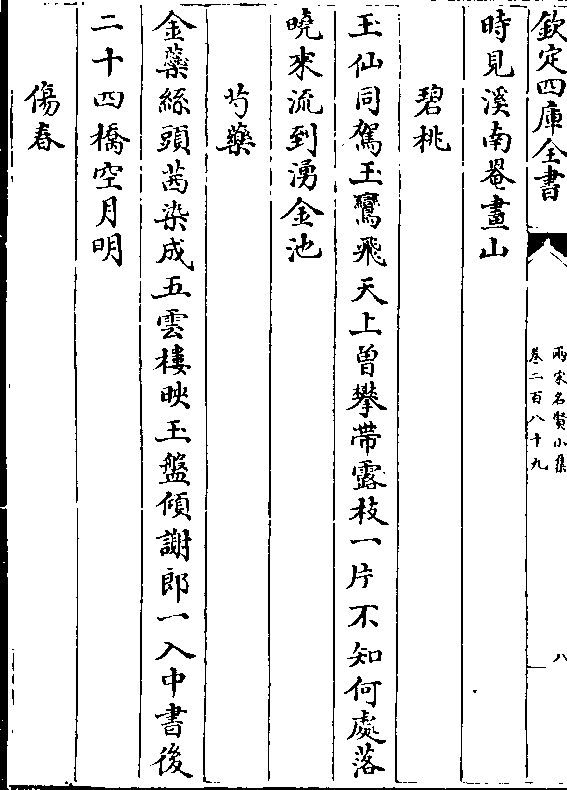 欽定四庫全書
兩宋名賢小集
卷二百八十九
八
時見溪南罨畫山
碧桃
玉仙同駕玉鸞飛天上曾攀帶露枝一片不知何處落
曉來流到湧金池
芍藥
金蘂絲頭茜染成五雲樓映玉盤傾謝郎一入中書後
二十四橋空月明
傷春